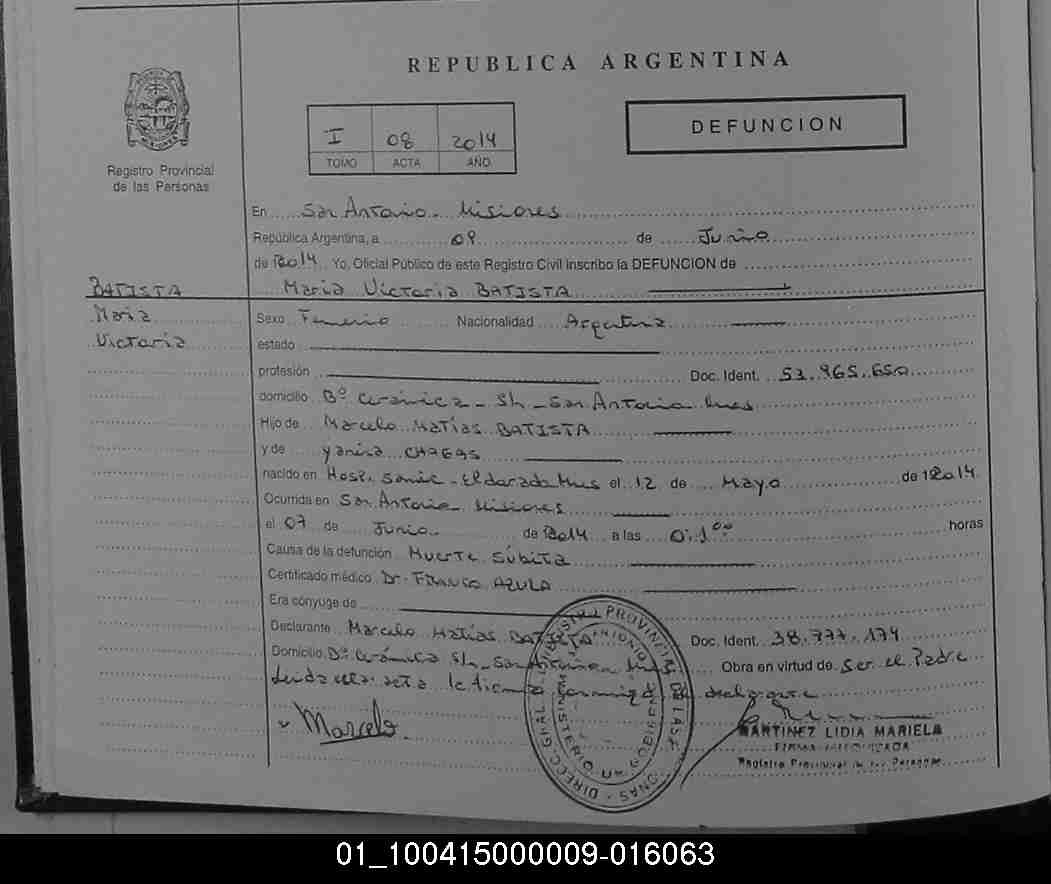 REPUBLICA ARGENTINA
I 08 2014
TOMO ACTA AÑO
DEFUNCION
Registro Provincial
de las Personas
En San Antonio - Misiones
República Argentina, a 09 de Junio
de 2014 Yo, Oficial Público de este Registro Civil inscribo la DEFUNCION de
BATISTA
Maria Victoria BATISTA
Maria
Victoria
Sexo Femenino Nacionalidad Argentina
estado
profesión Doc. Ident. 53.965.650
domicilio Bº Cerámica - S/n - San Antonio Mnes
Hijo de Marcelo Matías BATISTA
y de Yanisa CHAGAS
nacido en Hosp. Samic - Eldorado Mnes el 12 de Mayo de 2014
Ocurrida en San Antonio Misiones
el 07 de Junio de 2014 a las 0:1⁰⁰ horas
Causa de la defunción Muerte Súbita
Certificado médico Dr. FRANCO AZULA
Era cónyuge de
Declarante Marcelo Matías BATISTA Doc. Ident. 38.777.174
Domicilio Bº Cerámica S/n - San Antonio Mnes Obra en virtud de Ser el Padre
Leída esta acta la firma conmigo el declarante
Marcelo
MARTINEZ LIDIA MARIELA
FIRMA AUTORIZADA
Registro Provincial de las Personas
01_100415000009-016063